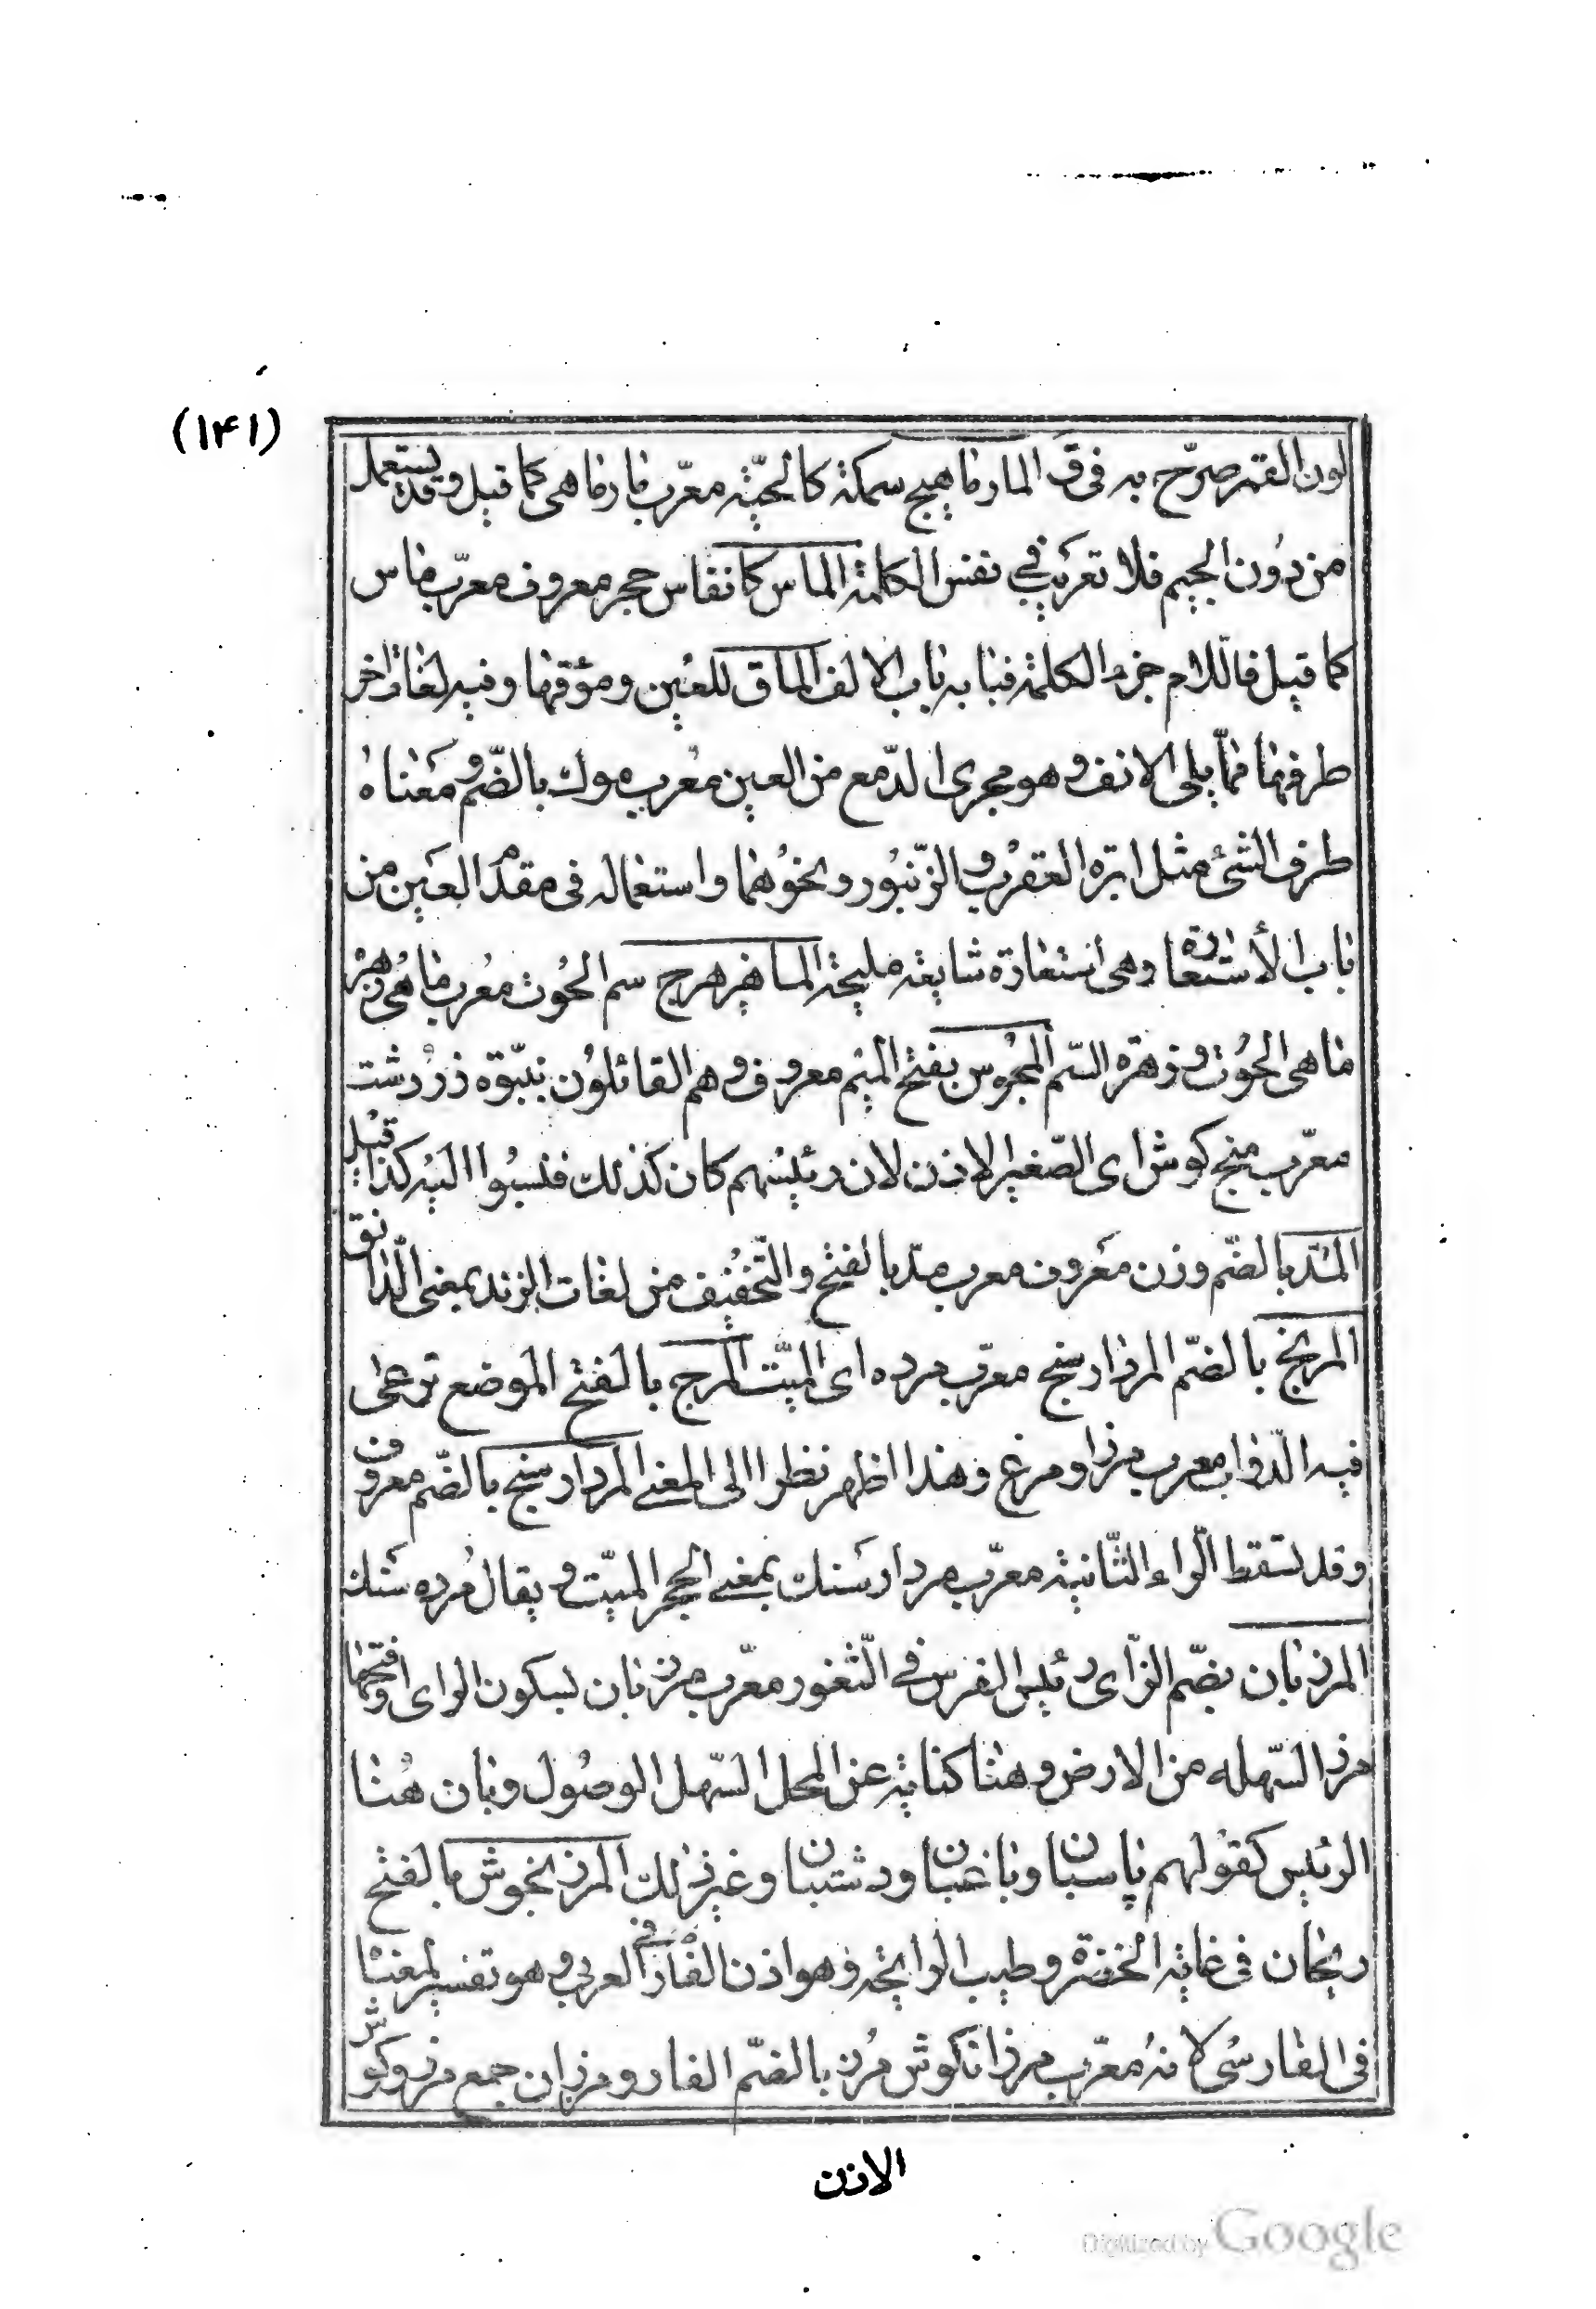 (۱۴۱)
لون القمر صرّح به فى ق المارماهيج سمكة كالحيّة معرّب مارماهى كما قيل وقد يستعمل
من دُون الجيم فلا تعريب فى نفس الكلمة الماس كانفاس حجر معروف معرّب ماس
كما قيل فاللام جزء الكلمة فبابه باب الالف الماق للعين ومؤقها وفيه لغات اخر
طرفها ممّا يلى الانف وهو مجرى الدّمع من العين معرب موك بالضّم ومعناه
طرف الشئ مثل ابرة العقرب والزّنبُور ونحوُهما واستعماله فى مقدّم العين من
باب الأستعارة وهى استعارة شايعة مليحة الماهيزهرج سم الحُوت معرب ماهى زهره
ماهى الحُوت وزهرة السّم المجُوس بفتح الميم معروف وهم القائلُون بنبّوة زرُدُشت
معرّب منج كوش اى الصّغير الاذن لان رئيسهم كان كذلك فنسبُوا اليه كذا قيل
المُدّ بالضّم وزن معَروف معرب مدّ بالفتح والتّخفيف من لغات الزند بمعنى الّذانق
المرتج بالضّم المردارسنج معرّب مرده اى الميّت المرج بالفتح الموضع ترعى
فيه الدّواب معرب مرزا ومرغ وهذا اظهر نظرا الى المعنى المردارسنج بالضّم معروف
وقد تسقط الّراء الثّانية معرّب مردار سَنك بمعنى الحجر الميّت ويقال مُرده سَنك
المرزبان بضّم الزّاى رئيس الفرس فى الّثغور معرّب مرزبان بسكون الراى او فتحها
مرز السّهله من الارض وهنا كناية عن المحل السّهل الوصُول وبان هُنا
الرئيس كقولهم پاسبان وباغبان ودشتبان وغير ذلك المرزنجوش بالفتح
ريحان فى غاية الخضرة وطيب الرايحة وهو اذن الفار فى العربى وهو تفسير لمعنا
فى الفارسُى لانهُ معرّب مرزانكوش مُرز بالضّم الفار ومرزان جمع مرز وكوش
الاذن
Digitized by Google